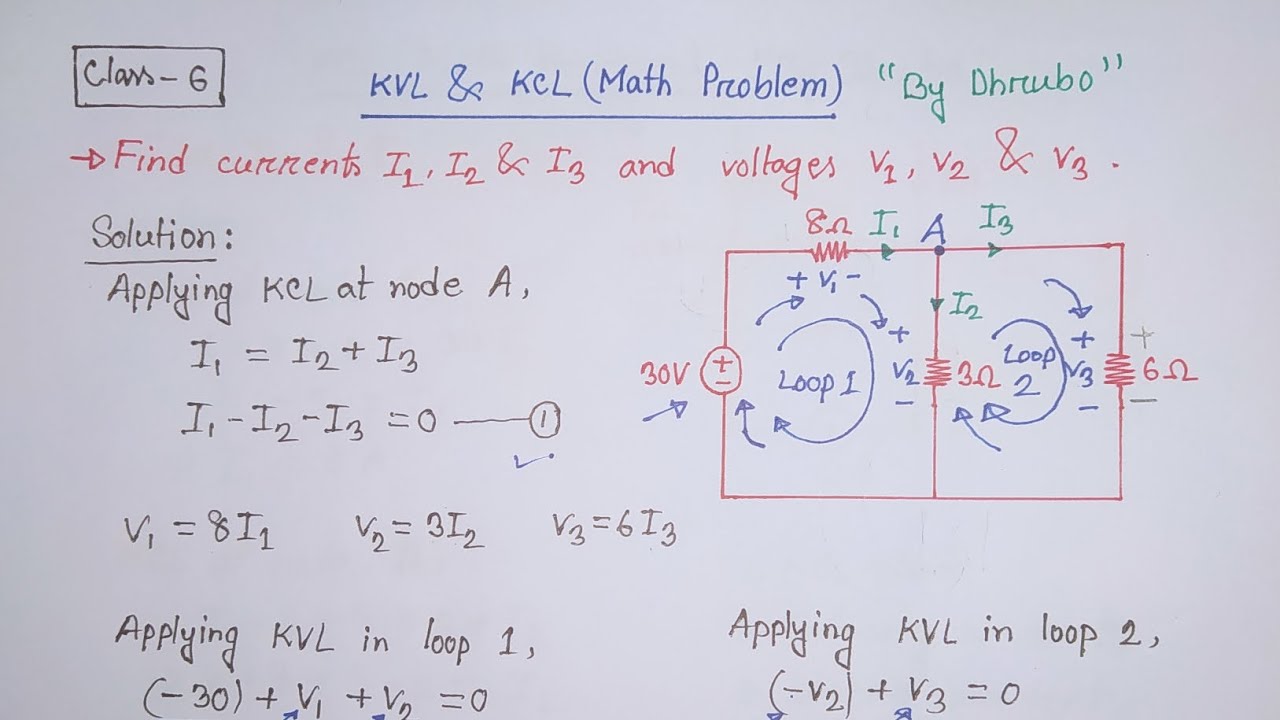 Class-6
KVL & KCL (Math Problem) "By Dhrubo"
→ Find currents I₁, I₂ & I₃ and voltages V₁, V₂ & V₃.
Solution:
Applying KCL at node A,
I₁ = I₂ + I₃
I₁ - I₂ - I₃ = 0 — ①
V₁ = 8I₁ V₂ = 3I₂ V₃ = 6I₃
8Ω I₁ A I₃
+ V₁ -
I₂
30V + -
Loop 1
+ V₂ -
3Ω
Loop 2
+ V₃ -
+ 6Ω -
Applying KVL in loop 1,
(-30) + V₁ + V₂ = 0
Applying KVL in loop 2,
(-V₂) + V₃ = 0